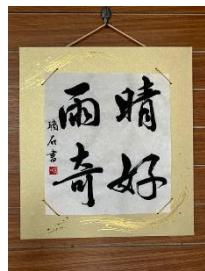 晴好
雨奇
石書